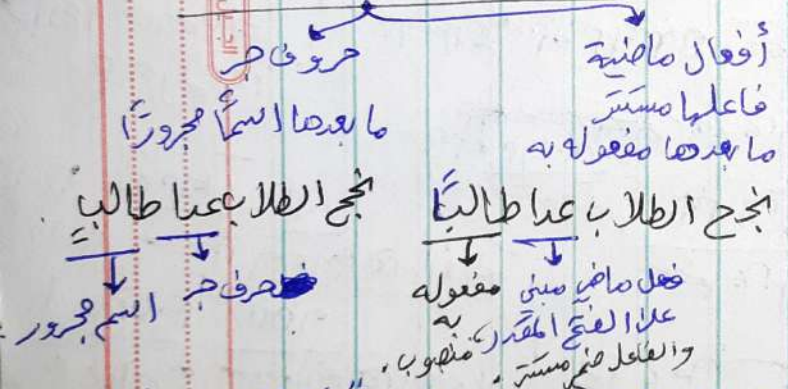 أفعال ماضية
فاعلها مستتر
ما بعدها مفعول به
نجح الطلاب عدا طالبًا
فعل ماضي مبني
على الفتح المقدر،
والفاعل ضمير مستتر.
مفعول به
منصوب.
حروف جر
ما بعدها اسمًا مجرورًا
نجح الطلاب عدا طالبٍ.
حرف جر
اسم مجرور.